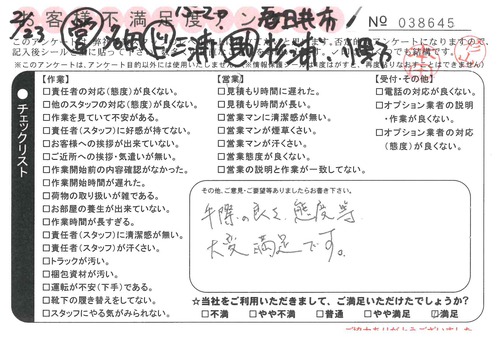 お客様不満足度アンケート
№ 038645
2/23
チェックリスト
【作業】
□責任者の対応(態度)が良くない。
□他のスタッフの対応(態度)が良くない。
□作業を見ていて不安がある。
□責任者(スタッフ)に好感が持てない。
□お客様への挨拶が出来ていない。
□ご近所への挨拶・気遣いが無い。
□作業開始前の内容確認がなかった。
□作業開始時間が遅れた。
□荷物の取り扱いが雑である。
□お部屋の養生が出来ていない。
□作業時間が長すぎる。
□責任者(スタッフ)に清潔感が無い。
□責任者(スタッフ)が汗くさい。
□トラックが汚い。
□梱包資材が汚い。
□運転が不安(下手)である。
□靴下の履き替えをしてない。
□スタッフにやる気がみられない。
【営業】
□見積もり時間に遅れた。
□見積もり時間が長い。
□営業マンに清潔感が無い。
□営業マンが煙草くさい。
□営業マンが汗くさい。
□営業態度が良くない。
□営業の説明と作業が一致してない。
【受付・その他】
□電話の対応が良くない。
□オプション業者の説明・作業が良くない。
□オプション業者の対応(態度)が良くない。
その他、ご意見・ご要望等ありましたらお書き下さい。
手際の良さ、態度等
大変満足です。
☆当社をご利用いただきまして、ご満足いただけたでしょうか?
□不満 □やや不満 □普通 □やや満足 □満足
ご協力ありがとうございました